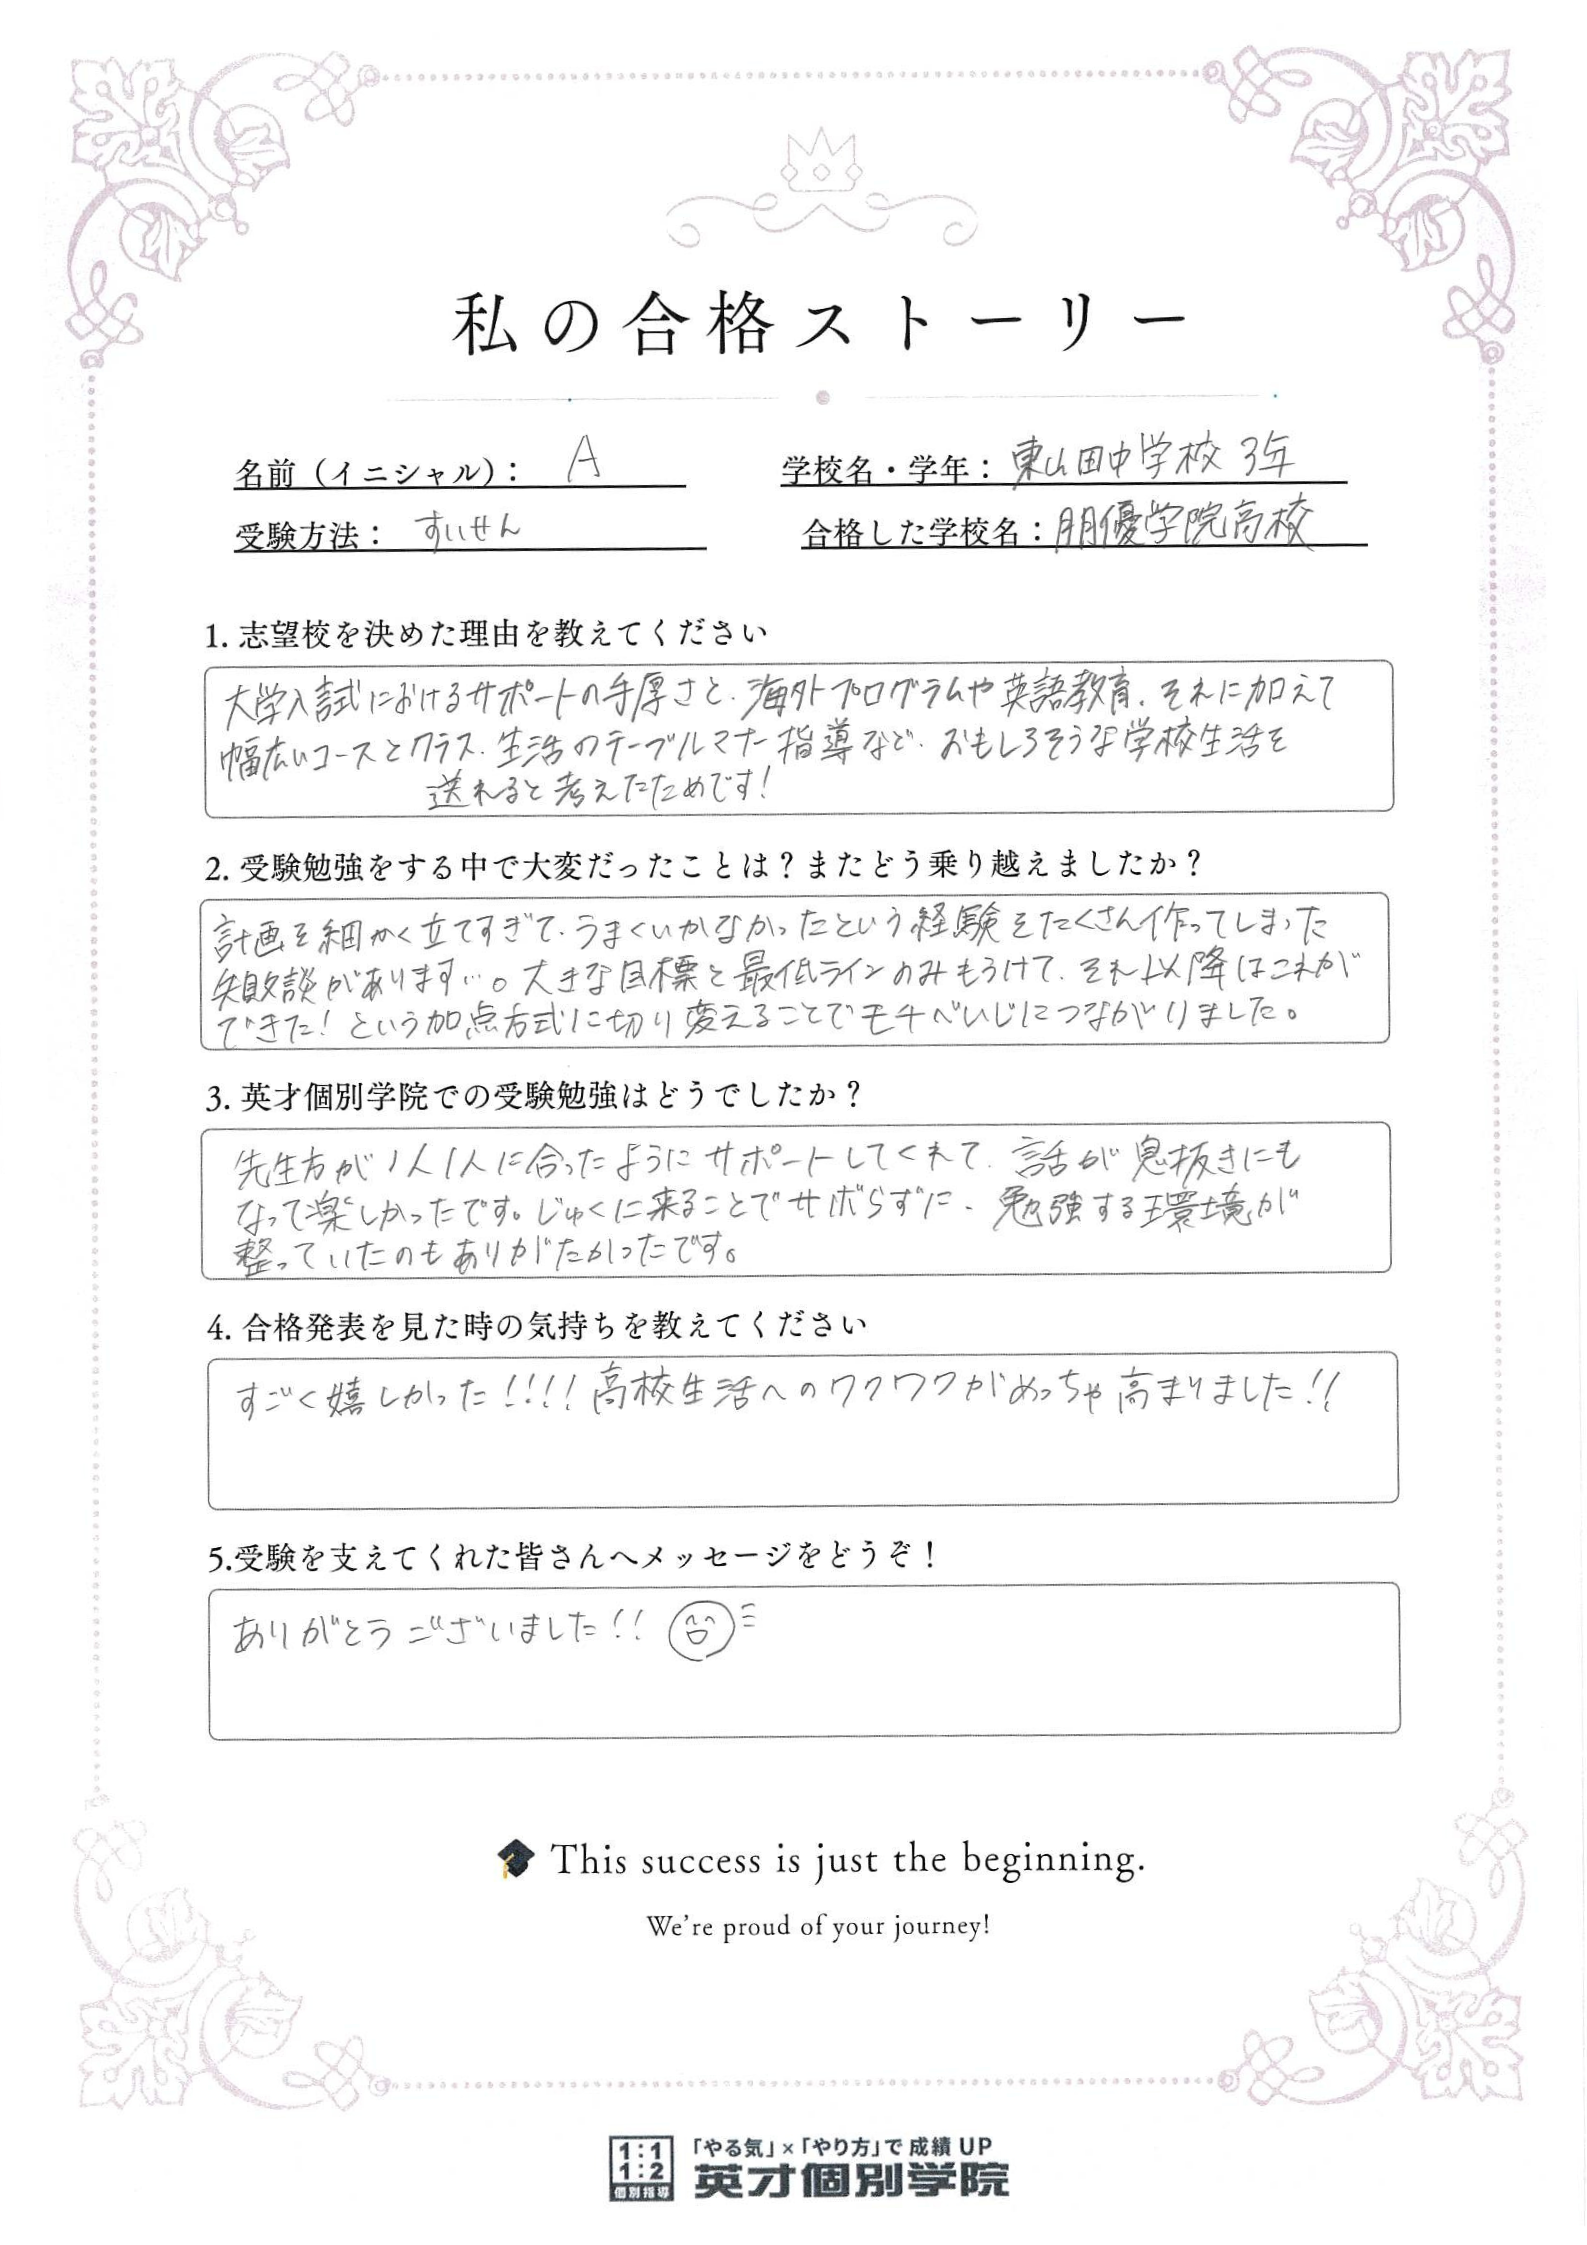 私の合格ストーリー
名前（イニシャル）： A
学校名・学年： 東山田中学校 3年
受験方法： すいせん
合格した学校名：朋優学院高校
1. 志望校を決めた理由を教えてください
大学入試におけるサポートの手厚さと、海外プログラムや英語教育、それに加えて
幅広いコースとクラス、生活のテーブルマナー指導など、おもしろそうな学校生活を
送れると考えたためです！
2. 受験勉強をする中で大変だったことは？またどう乗り越えましたか？
計画を細かく立てすぎて、うまくいかなかったという経験をたくさん作ってしまった
失敗談があります…。大きな目標と最低ラインのみもうけて、それ以降はこれが
できた！という加点方式に切り変えることでモチベいじにつながりました。
3. 英才個別学院での受験勉強はどうでしたか？
先生方が1人1人に合ったようにサポートしてくれて、話が息抜きにも
なって楽しかったです。じゅくに来ることでサボらずに、勉強する環境が
整っていたのもありがたかったです。
4. 合格発表を見た時の気持ちを教えてください
すごく嬉しかった！！！！高校生活へのワクワクがめっちゃ高まりました！！
5.受験を支えてくれた皆さんへメッセージをどうぞ！
ありがとうございました！！
This success is just the beginning.
We're proud of your journey!
1:1
1:2
個別指導
「やる気」×「やり方」で成績UP
英才個別学院